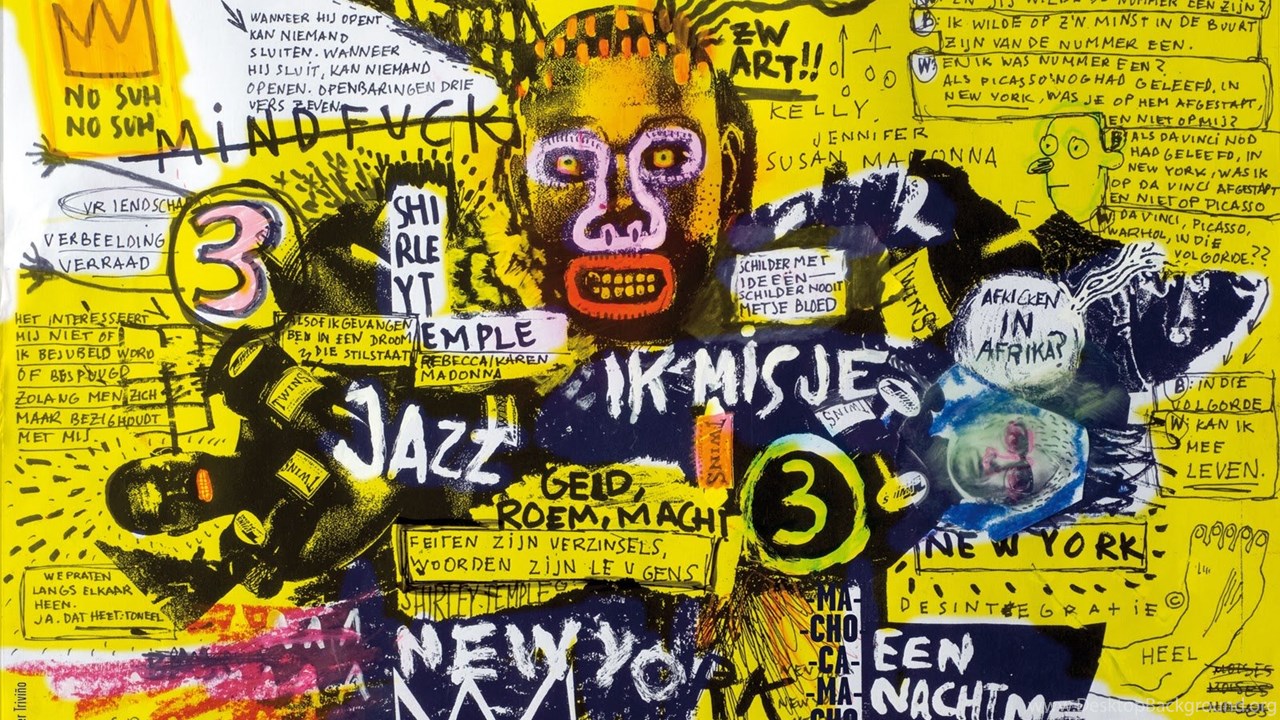 NO SUH
NO SUH
WANNEER HIJ OPENT
KAN NIEMAND
SLUITEN. WANNEER
HIJ SLUIT, KAN NIEMAND
OPENEN. OPENBARINGEN DRIE
VERS ZEVEN
MINDFUCK
ZW
ART!!
KELLY,
JENNIFER
SUSAN MADONNA
B: IK WILDE OP Z'N MINST IN DE BUURT
ZIJN VAN DE NUMMER EEN.
W: EN IK WAS NUMMER EEN?
ALS PICASSO NOG HAD GELEEFD, IN
NEW YORK, WAS JE OP HEM AFGESTAPT,
EN NIET OP MIJ?
B: ALS DA VINCI NOG
HAD GELEEFD, IN
NEW YORK, WAS IK
OP DA VINCI AFGESTAPT
EN NIET OP PICASSO
W: DA VINCI, PICASSO,
WARHOL, IN DIE
VOLGORDE??
B: IN DIE
VOLGORDE
W: KAN IK
MEE
LEVEN.
VRIENDSCHAP
VERBEELDING
VERRAAD
3
SHI
RLE
YT
EMPLE
REBECCA/KAREN
MADONNA
ALSOF IK GEVANGEN
BEN IN EEN DROOM
DIE STILSTAAT
SCHILDER MET
IDEEËN
SCHILDER NOOIT
METJE BLOED
TWINS
AFKICKEN
IN
AFRIKA?
HET INTERESSEERT
HIJ NIET OF
IK BEJUBELD WORD
OF BESPUUGD
ZOLANG MEN ZICH
MAAR BEZIGHOUDT
MET MIJ.
TWINS
TWINS
JAZZ
IK MIS JE
TWINS
TWINS
3
GELD,
ROEM, MACHT
FEITEN ZIJN VERZINSELS,
WOORDEN ZIJN LEUGENS
SHIRLEY TEMPLE
WE PRATEN
LANGS ELKAAR
HEEN.
JA. DAT HEET: TONEEL
NEW YORK
DESINTEGRATIE ©
NEW YORK
MA-
-CHO
-CA-
-MA-
-CHO
EEN
NACHT ME
HEEL
MOSES
MOSES
MOSES
er Triviño
www.DesktopBackground.org